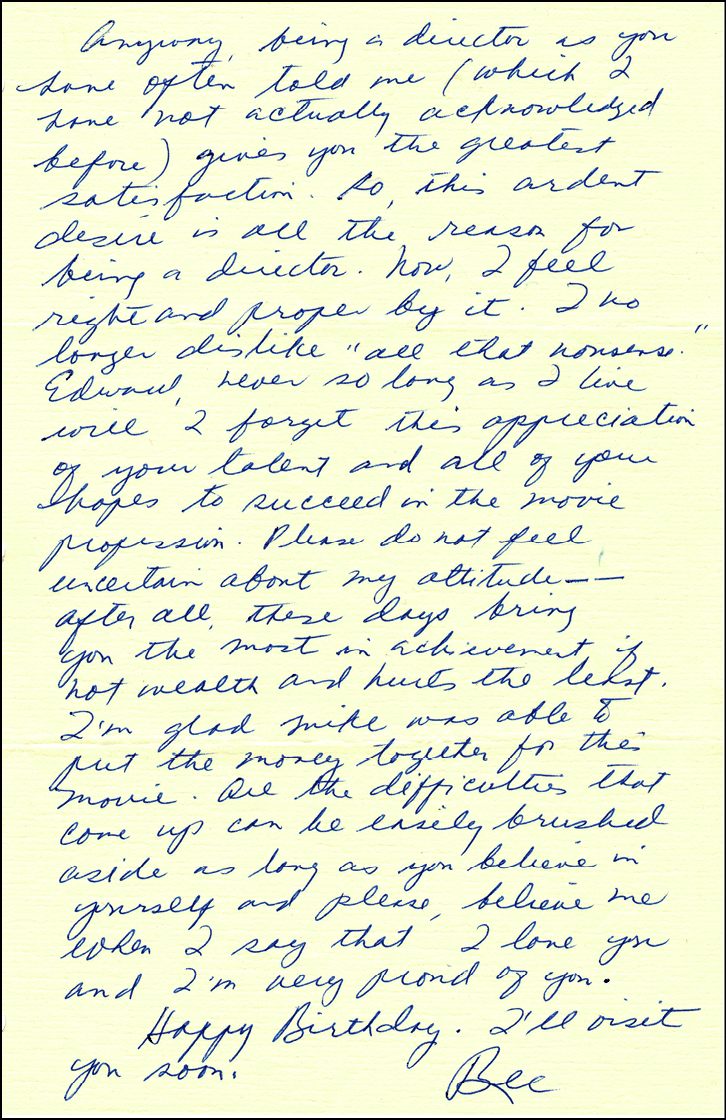 Anyway, being a director as you
have often told me (which I
have not actually acknowledged
before) gives you the greatest
satisfaction. So, this ardent
desire is all the reason for
being a director. Now, I feel
right and proper by it. I no
longer dislike "all that nonsense."
Edward, never so long as I live
will I forget this appreciation
of your talent and all of your
hopes to succeed in the movie
profession. Please do not feel
uncertain about my attitude——
after all, these days bring
you the most in achievement if
not wealth and hurts the least.
I'm glad Mike was able to
put the money together for this
movie. All the difficulties that
come up can be easily brushed
aside as long as you believe in
yourself and please, believe me
when I say that I love you
and I'm very proud of you.
Happy Birthday. I'll visit
you soon.
Bee